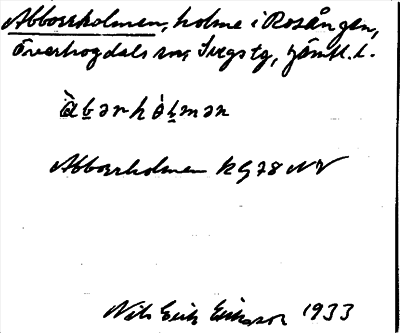 Abborrholmen, holme i Rosången,
Överhogdals sn, Svegs tg, Jämtl. l.
àbərhòlmən
Abborrholmen kg 78 NV
Nils Erik Eriksson 1933